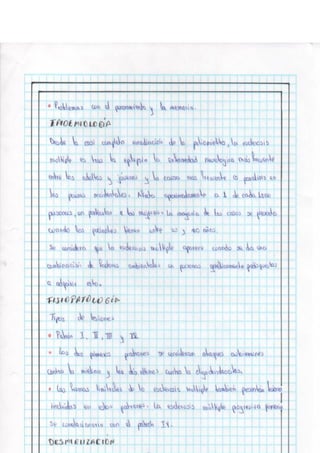 • Problemas con el pensamiento y la memoria.
EPIDEMIOLOGÍA
Desde la casi completa erradicación de la poliomielitis, la esclerosis
múltiple es tras la epilepsia la enfermedad neurologica más frecuente
entre los adultos y jóvenes y la causa mas frecuente de paralisis en
los paises occidentales. Afecta aproximadamente a 1 de cada 1000
personas, en particular a las mujeres. La mayoria de los casos se presenta
cuando los pacientes tienen entre 20 y 40 años.
Se considera que la esclerosis multiple aparece cuando se da una
combinación de factores ambientales en personas genéticamente predispuestas
a adquirir esta.
FISIOPATOLOGÍA
Tipos de lesiones
• Patrón I, II, III y IV.
• Los dos primeros patrones se consideran ataques autoinmunes
contra la mielina y los dos últimos contra la oligodendrocitos.
• Las formas limitales de la esclerosis multiple tambien presentan
incluidas en estos patrones. La esclerosis múltiple progresiva primaria
se correlacionaria con el patrón IV.
DESMIELIZACION